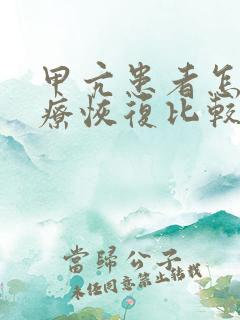 甲亢患者怎
療恢復比較
當歸公子
未经同意禁止转载